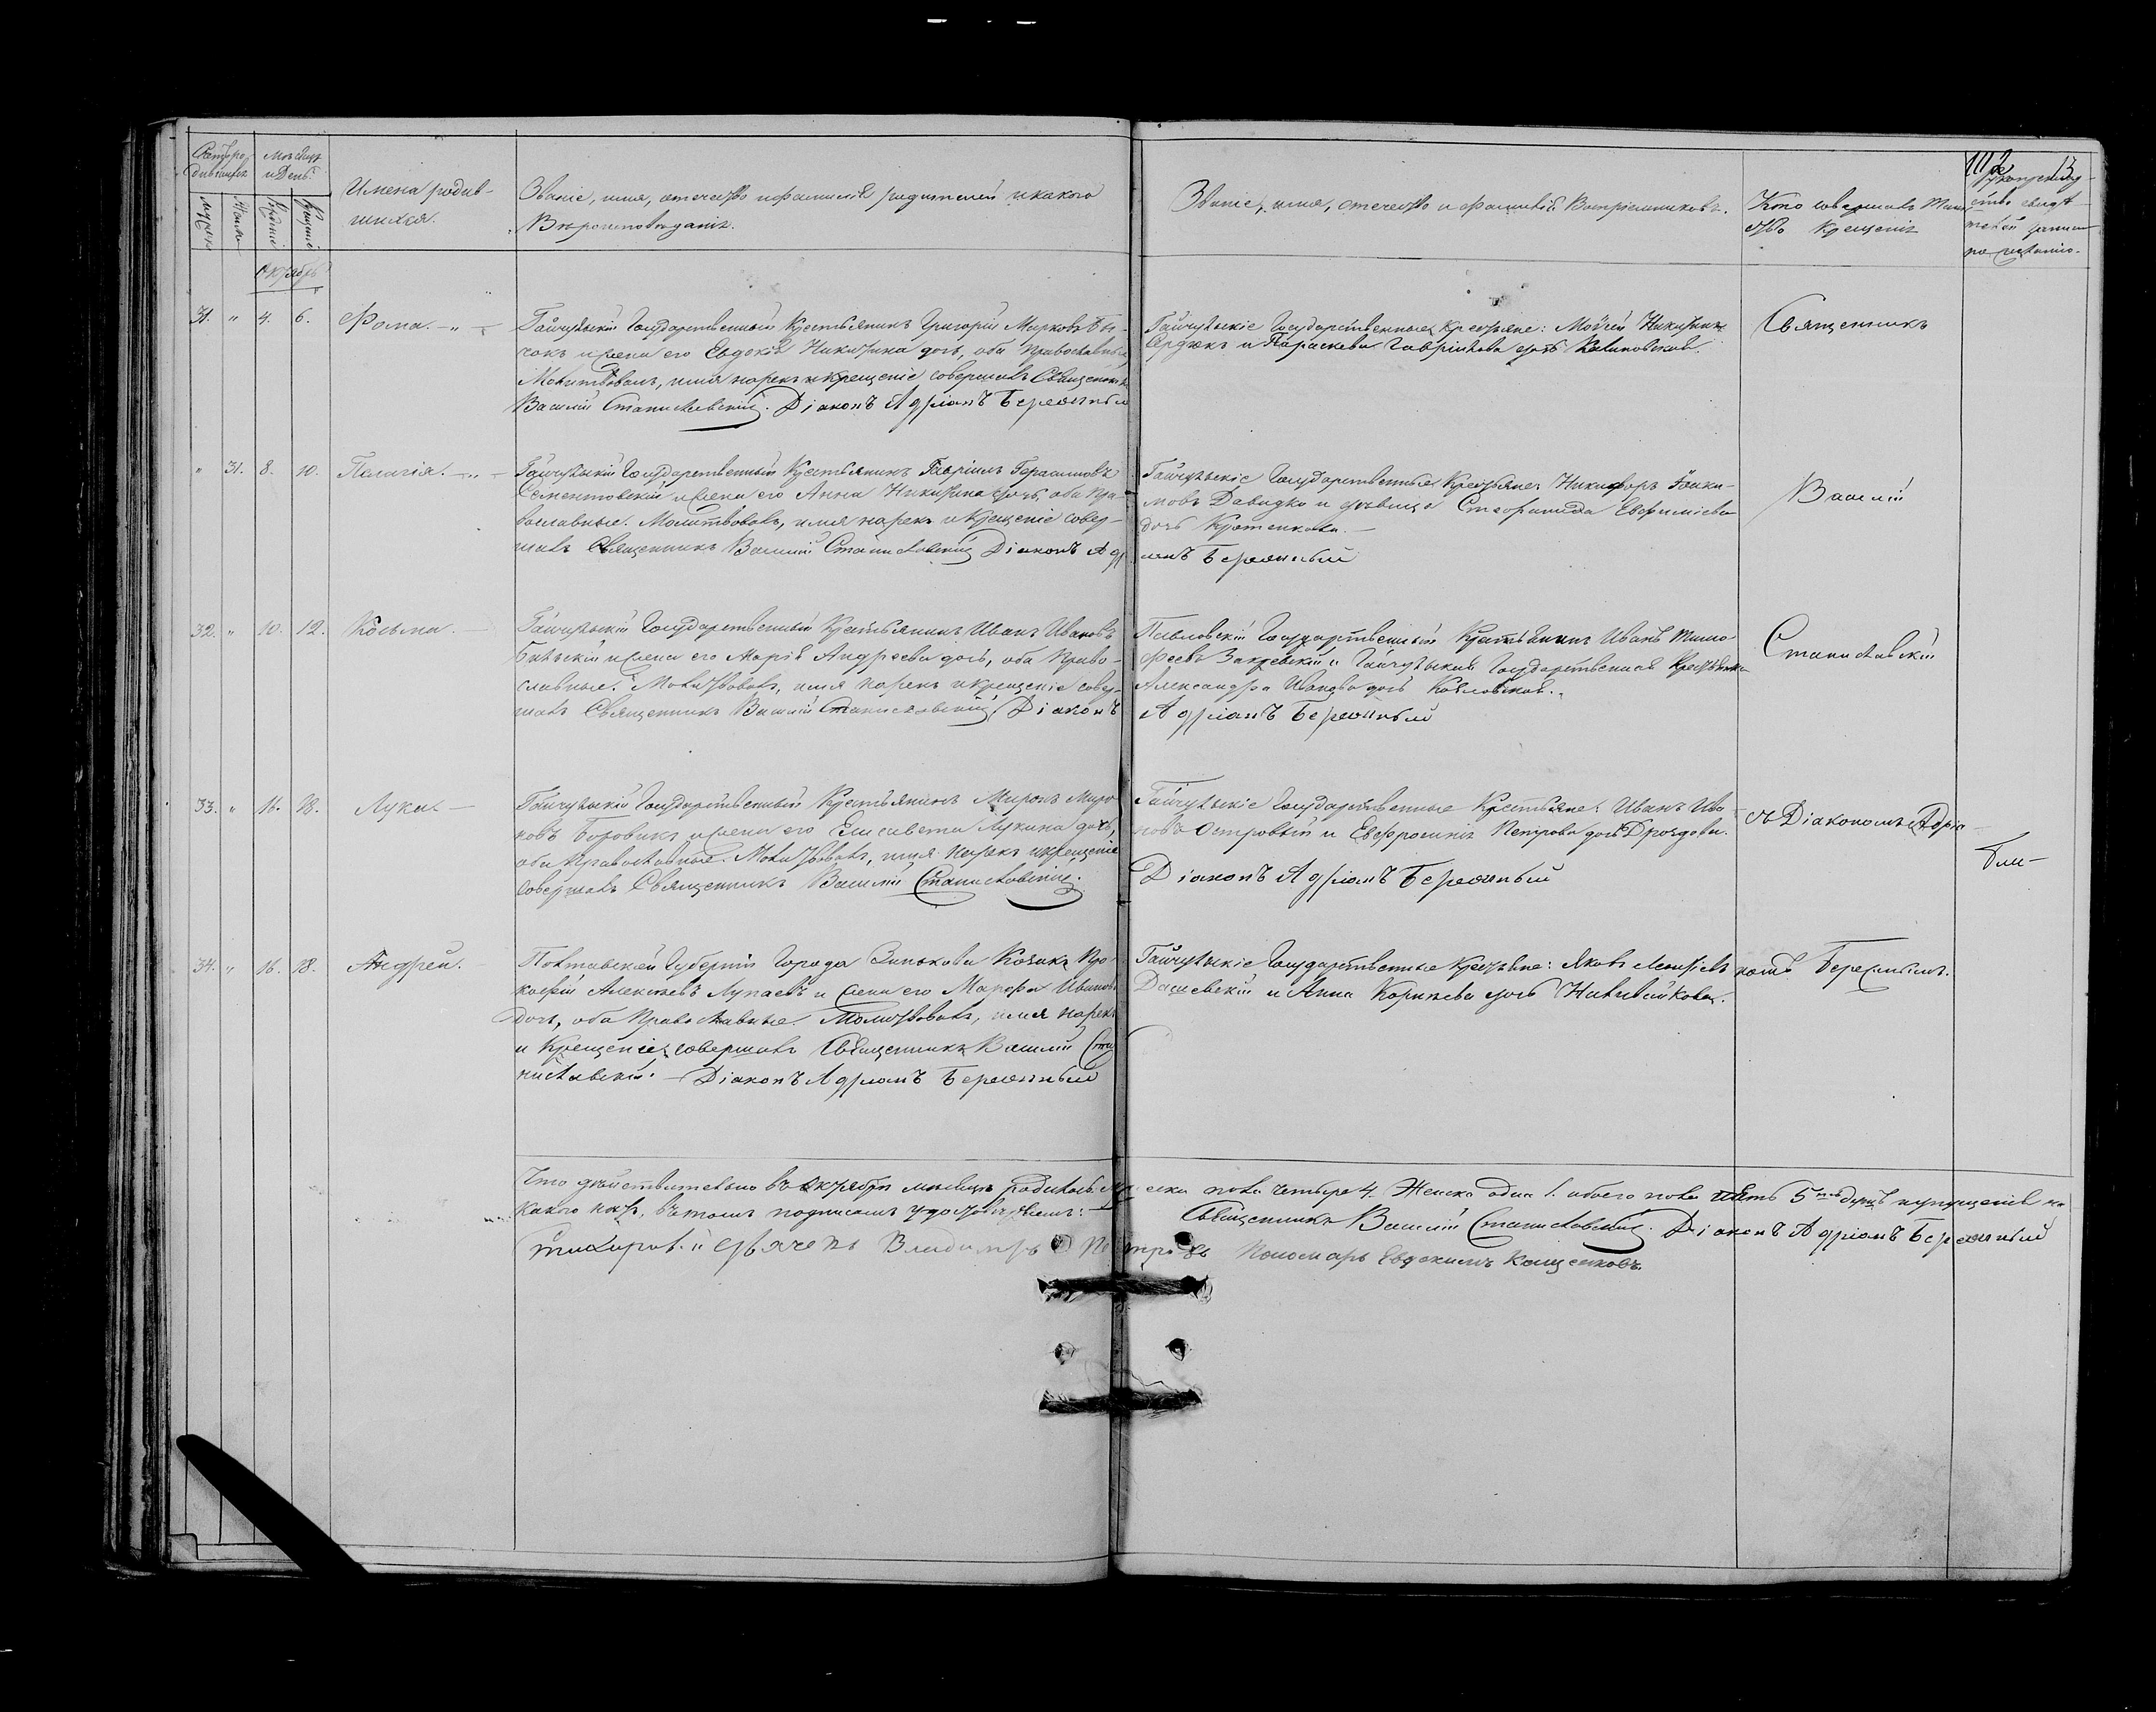 Счетъ ро-
дившихся
Мѣсяцъ
и День.
Имена родив-
шихся.
Званіе, имя, отчество и фамилія родителей и какого
Вѣроисповѣданія.
Званіе, имя, отечество и фамилій Воспріемниковъ.
Кто совершалъ Таин-
ство Крещенія
Рукоприклад-
ство свидѣ-
телей записи
по желанію.
13
Мужеск
Женск
Рожденія
Крещенія
Октябрь
31. " 4. 6. Фома. - " -
Гайчульскій Государственный Крестьянинъ Григорій Марковъ Бы-
чокъ и жена его Евдокія Никитина дочь, оба Православные
Молитвовалъ, имя нарекъ и крещеніе совершалъ Священникъ
Василій Станиславскій. Діаконъ Адріанъ Бережный
Гайчульскіе Государственные Крестьяне: Моѵсей Никитинъ
Сердюкъ и Параскева Гавріилова дочь Калиновская.
Священникъ
" 31. 8. 10. Пелагія. - " -
Гайчульскій Государственный Крестьянинъ Гавріилъ Герасимовъ
Сементовскій и жена его Анна Никитина дочь, оба Пра-
вославные. Молитвовалъ, имя нарекъ и Крещеніе совер-
шалъ Священникъ Василій Станиславскій Діаконъ Адр
Гайчульскіе Государственные Крестьяне Никифоръ Іоаки-
мовъ Давидко и дѣвица Стефанида Евфиміева
дочь
іанъ Бережный
Василій
32. " 10. 12. Косьма. -
Гайчульскій Государственный Крестьянинъ Иванъ Ивановъ
Бѣльскій и жена его Марія Андреева дочь, оба Право-
славные. Молитвовалъ, имя нарекъ и крещеніе совер-
шалъ Священникъ Василій Станиславскій Діаконъ
Павловскій Государственный Крестьянинъ Иванъ Тимо-
феевъ Закревскій и Гайчульская Государственная Крестьянка
Александра Иванова дочь Козловская.
Адріанъ Бережный
Станиславскій
33. " 16. 18. Лука. -
Гайчульскій Государственный Крестьянинъ Миронъ Миро-
новъ Боровикъ и жена его Елисавета Лукина дочь,
оба Православные. Молитвовалъ, имя нарекъ и крещеніе
совершалъ Священникъ Василій Станиславскій.
Гайчульскіе Государственные Крестьяне: Иванъ Ива-
новъ Островскій и Евфросинія Петрова дочь Дроздова.
Діаконъ Адріанъ Бережный
съ Діакономъ Адріа-
34. " 16. 18. Андрей.
Полтавской Губерніи Города Зинькова Козакъ Про-
кофій Алексѣевъ Лупаевъ и жена его Марфа Иванова
дочь, оба Православные. Молитвовалъ, имя нарекъ
и Крещеніе совершалъ Священникъ Василій Ста-
ниславскій. - Діаконъ Адріанъ Бережный
Гайчульскіе Государственные Крестьяне: Яковъ Леонтіевъ
Дашевскій и Анна Корнѣева дочь Наливайкова.
номъ Бережнымъ.
Что дѣйствительно въ октябрѣ мѣсяцѣ родилось мужеска пола четыре 4. Женска одна 1. обоего пола пять 5
въ томъ подписомъ удостовѣряемъ: - Священникъ Василій Станиславскій. Діаконъ Адріанъ Бережный
Дьячекъ Владиміръ Петровъ Пономарь Евдокимъ